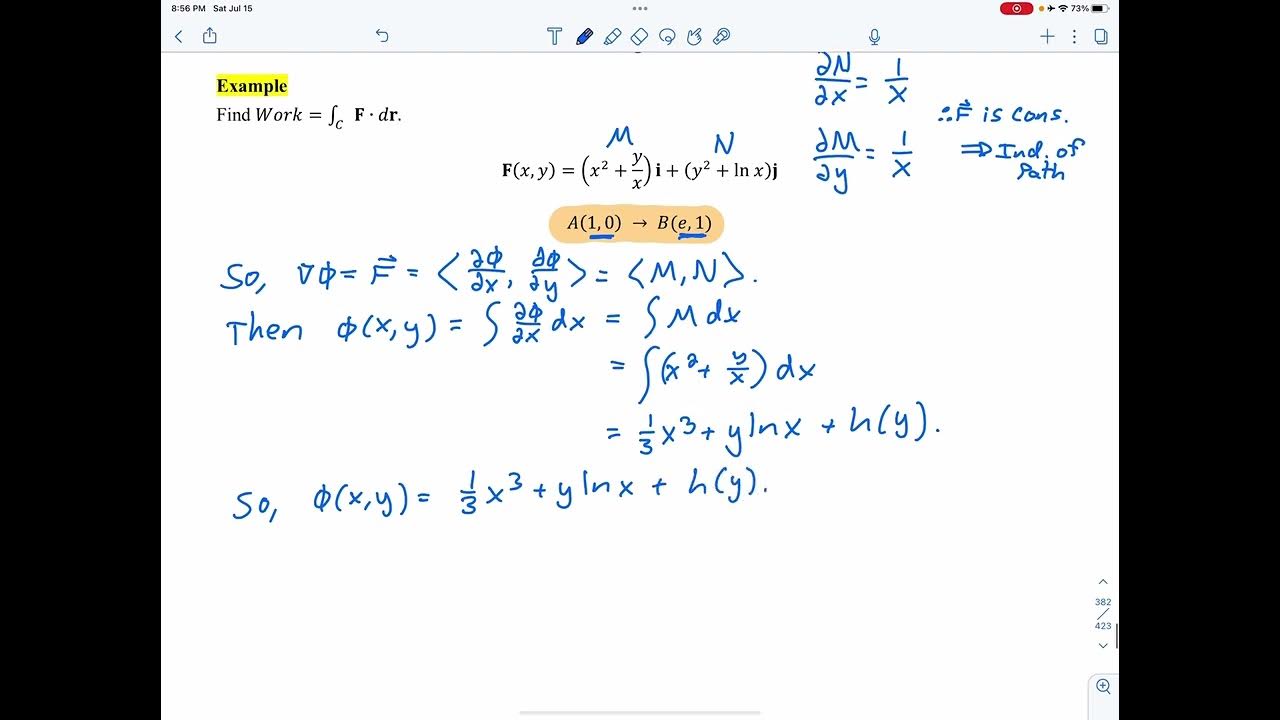 8:56 PM Sat Jul 15
73%
T
∂N/∂x = 1/x
Example
∴ F⃗ is cons.
Find Work = ∫_C F · dr.
∂M/∂y = 1/x
⇒ Ind. of
Path
M N
F(x, y) = (x² + y/x) i + (y² + ln x)j
A(1, 0) → B(e, 1)
So, ∇ϕ = F⃗ = ⟨∂ϕ/∂x, ∂ϕ/∂y⟩ = ⟨M, N⟩.
Then ϕ(x, y) = ∫ ∂ϕ/∂x dx = ∫ M dx
= ∫(x² + y/x) dx
= 1/3 x³ + y ln x + h(y).
So, ϕ(x, y) = 1/3 x³ + y ln x + h(y).
382
/
423